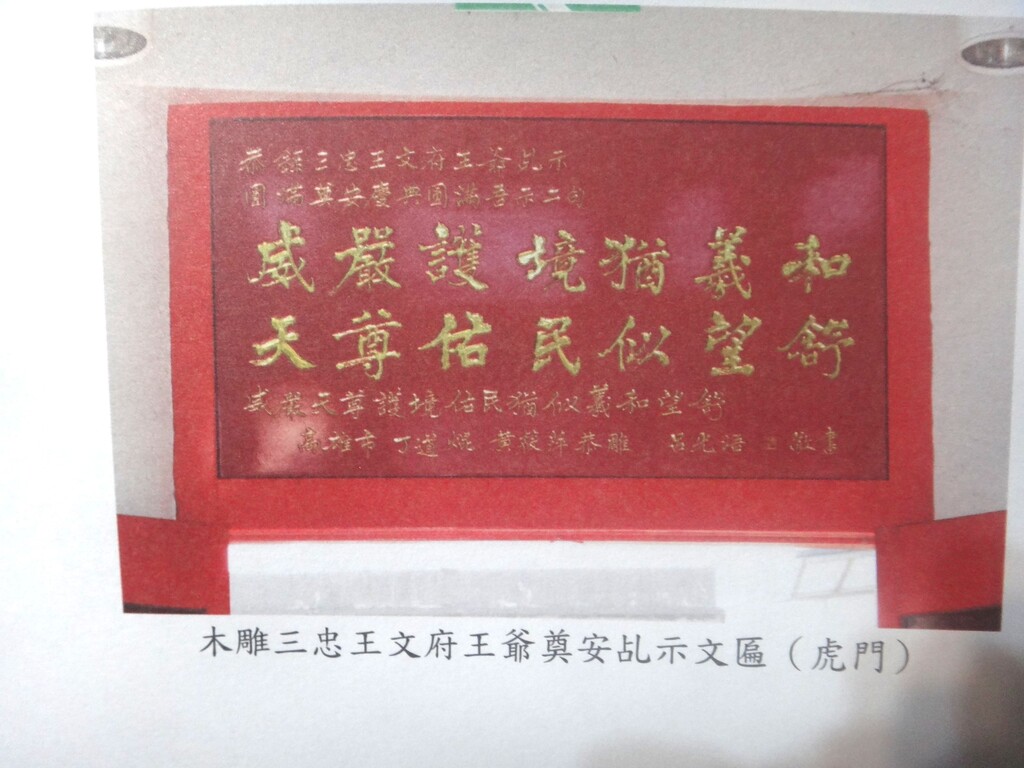 恭錄三忠王文府王爺乩示
圓滿奠安慶典圓滿吾示二句
威嚴護境猶羲和
天尊佑民似望舒
威嚴天尊護境佑民猶似羲和望舒
高雄市 丁道 黃 萍恭雕 呂光 敬書
木雕三忠王文府王爺奠安乩示文匾（虎門）